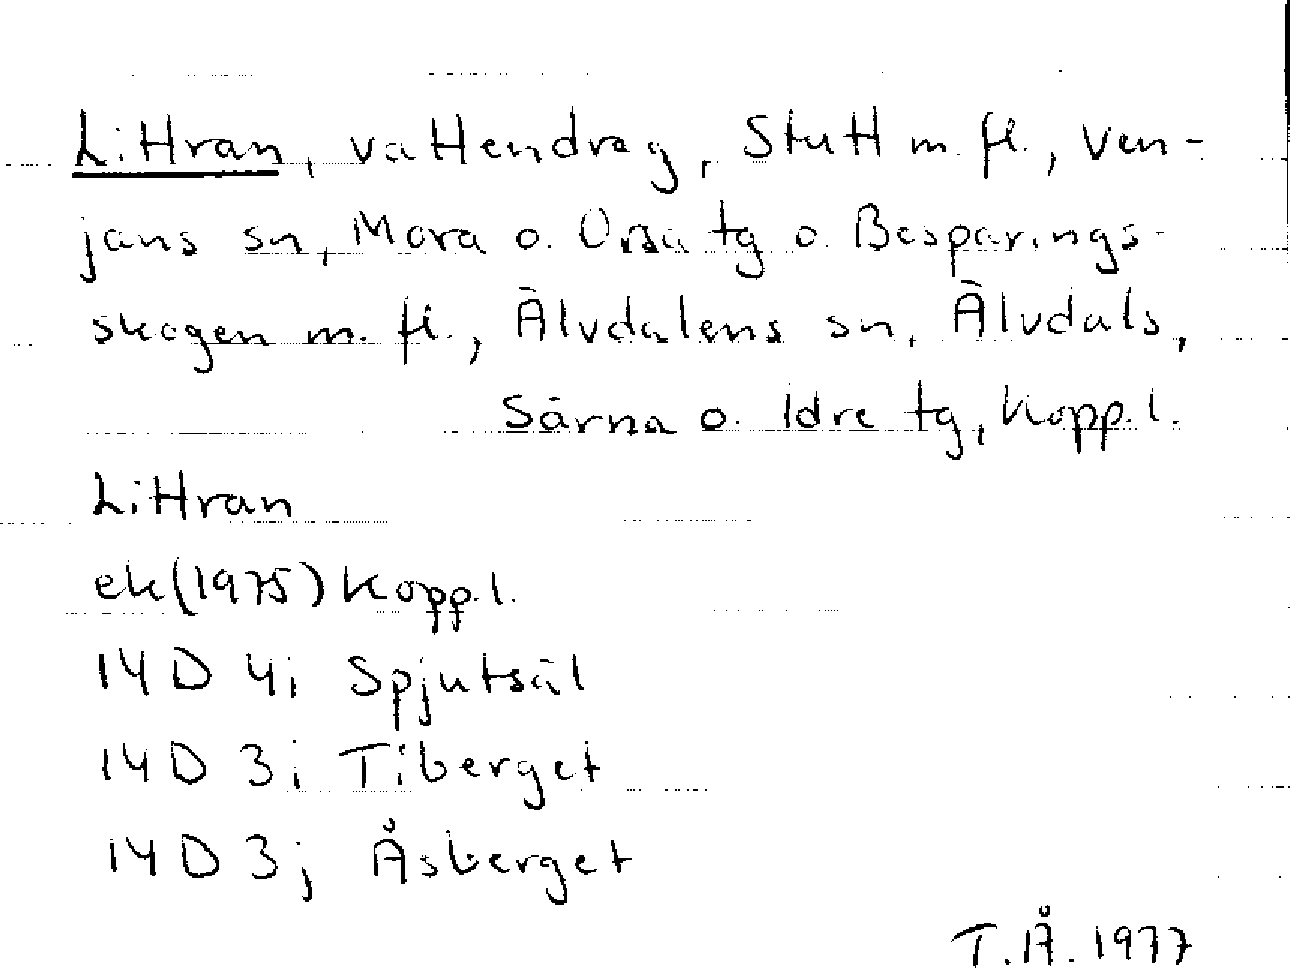 Littran, vattendrag, Stutt m. fl., Ven-
jans sn, Mora o. Orsa tg o. Besparings-
skogen m. fl., Älvdalens sn, Älvdals,
Särna o. Idre tg, Kopp. l.
Littran
ek(1975) Kopp. l.
14 D 4i Spjutsäl
14 D 3i Tiberget
14 D 3j Åsberget
T.Å. 1977